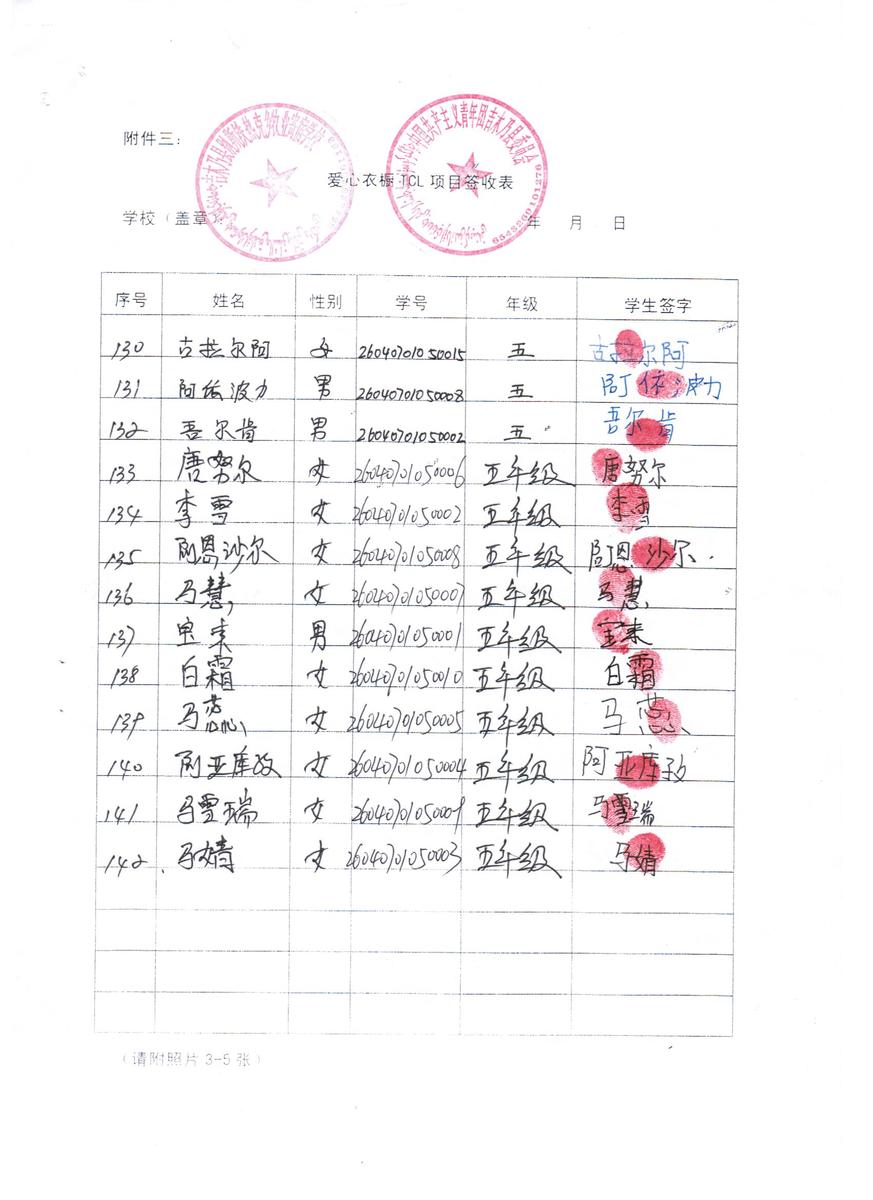 附件三：
爱心衣橱·TCL 项目签收表
学校（盖章）： 年 月 日
序号 姓名 性别 学号 年级 学生签字
130 古拉尔阿 女 26040701050015 五 古拉尔阿
131 阿依波力 男 26040701050008 五 阿依波力
132 吾尔肯 男 26040701050002 五 吾尔肯
133 唐努尔 女 26040701050006 五年级 唐努尔
134 李雪 女 26040701050002 五年级 李雪
135 阿恩沙尔 女 26040701050008 五年级 阿恩沙尔
136 马慧 女 26040701050007 五年级 马慧
137 宝来 男 26040701050001 五年级 宝来
138 白霜 女 26040701050010 五年级 白霜
139 马蕊 女 26040701050005 五年级 马蕊
140 阿亚库孜 女 26040701050004 五年级 阿亚库孜
141 马雪瑞 女 26040701050009 五年级 马雪瑞
142 马婧 女 26040701050003 五年级 马婧
（请附照片 3-5 张）